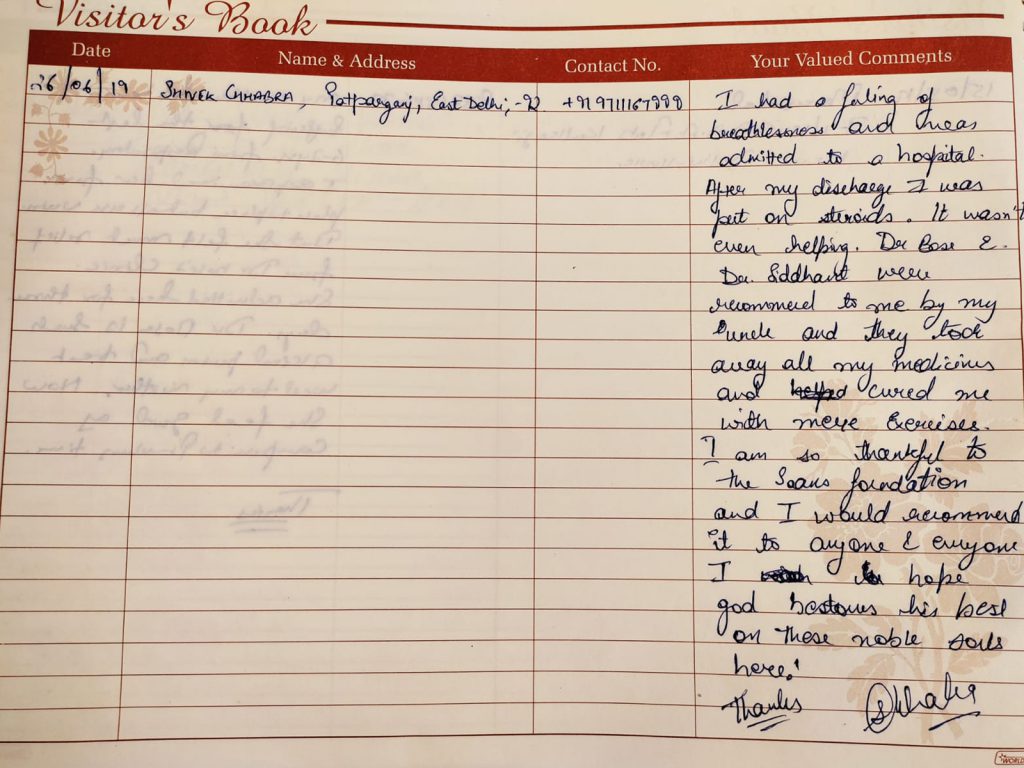 Visitor's Book
Date Name & Address Contact No. Your Valued Comments
26/06/19 SHIVEK CHHABRA, Patparganj, East Delhi, -92
I had a feeling of
breathlessness and was
admitted to a hospital.
After my discharge I was
put on steroids. It wasn't
even helping. Dr Bose &
Dr. Siddhant were
recommend to me by my
uncle and they took
away all my medicines
and cured me
with mere Exercises.
I am so thankful to
the Saans foundation
and I would recommend
it to anyone & everyone
I hope
god bestows his best
on these noble souls
here!
Thanks